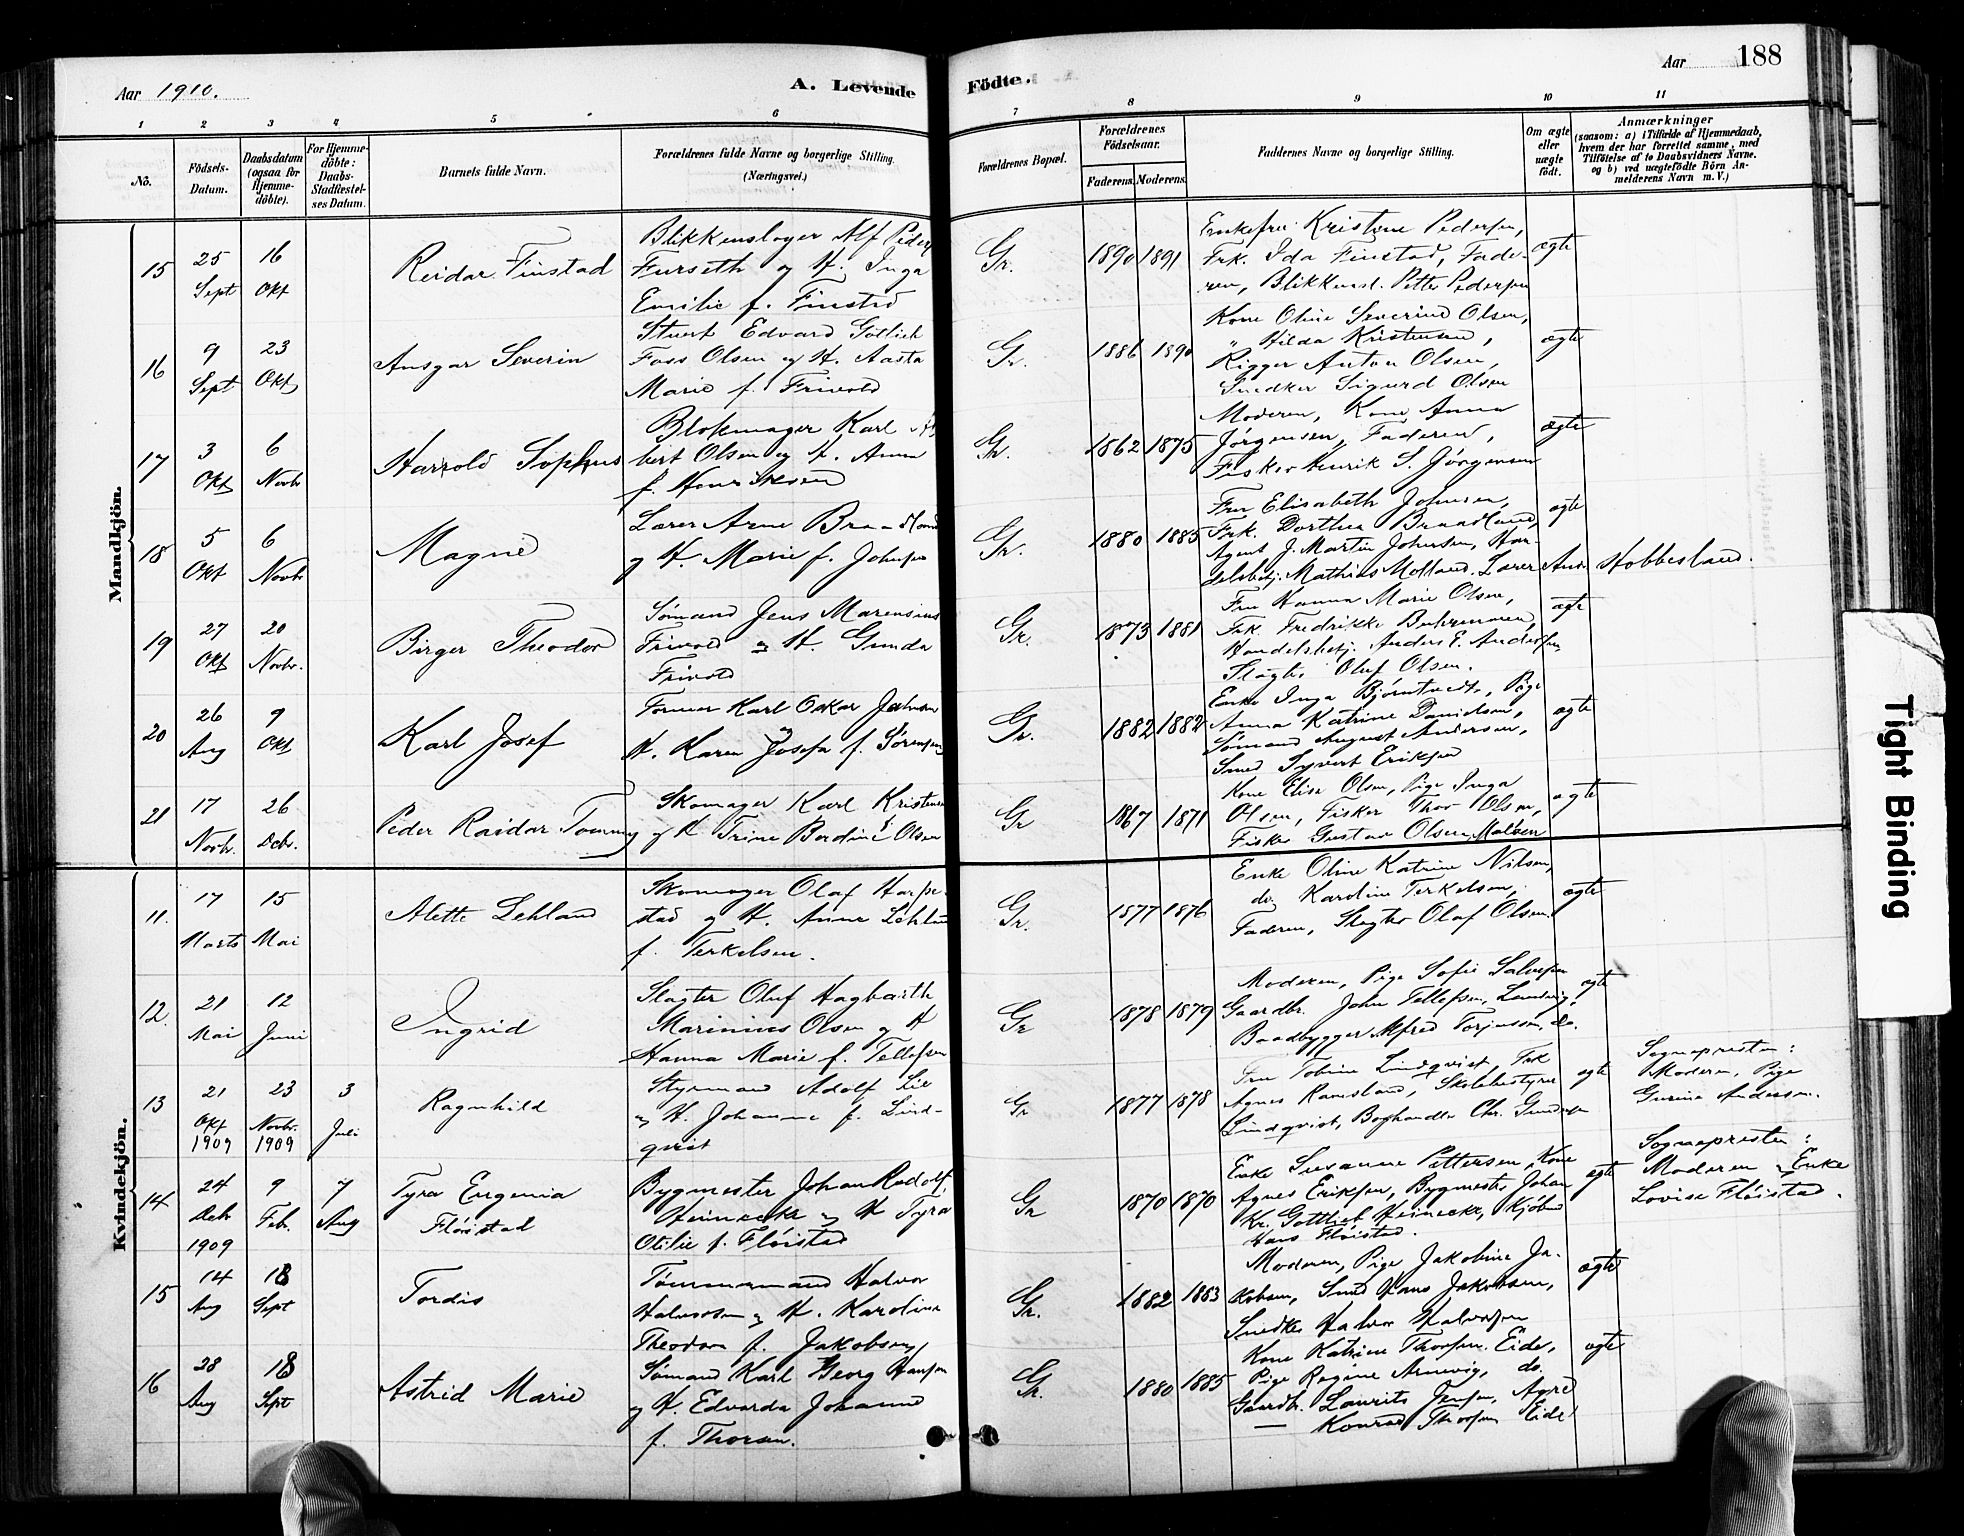 Aar 1910.
A. Levende
Födte.
Aar
188
1 2 3 4 5 6 7 8 9 10 11
No.
Födsels-
Datum.
Daabsdatum
(ogsaa for
Hjemme-
döbte).
For Hjemme-
döbte:
Daabs-
Stadfæstel-
ses Datum.
Barnets fulde Navn.
Forældrenes fulde Navne og borgerlige Stilling.
(Næringsvei.)
Forældrenes Bopæl.
Forældrenes
Födselsaar.
Faderens. Moderens.
Faddernes Navne og borgerlige Stilling.
Om ægte
eller
uægte
födt.
Anmærkninger
(saasom: a) i Tilfælde af Hjemmedaab,
hvem der har forrettet samme, med
Tilföielse af to Daabsvidners Navne.
og b) ved uægtefödte Börn An-
melderens Navn m. V.)
Mandkjön.
15
25
Sept
16
Okt
Reidar Finstad
Blikkenslager Alf Peder
Furseth og H. Inga
Emilie f. Finstad
Gr.
1890 1891
Enkefru Kristine Pedersen,
Frk. Ida Finstad, Fade-
ren, Blikkensl. Petter Pedersen
ægte
16
9
Sept
23
Okt
Ansgar Severin
Stuert Edvard Gotlieb
Foss Olsen og H. Aasta
Marie f. Frivold
Gr.
1886 1890
Kone Oline Severine Olsen,
" Hilda Kristensen,
Rigger Anton Olsen,
Snedker Sigurd Olsen
ægte
17
3
Okt
6
Novbr
Harrold Sophus
Blokmager Karl
bert Olsen og H. Anna
f. Henriksen
Gr.
1862 1875
Moderen, Kone Anna
Jörgensen, Faderen,
Fisker Henrik S. Jörgensen
ægte
18
5
Okt
6
Novbr
Magne
Lærer Arne Braadland
og H. Marie f. Johnsen
Gr.
1880 1885
Fru Elisabeth Johnsen,
Frk. Dorthea Braadland,
Agent J. Martin Johnsen, Han-
delsbetj. Mathias Molland. Lærer And. Hobbesland.
ægte
19
27
Okt
20
Novbr.
Birger Theodor
Sømand Jens Marensius
Frivold og H. Gunda
Frivold
Gr.
1873 1881
Fru Hanna Marie Olsen,
Frk. Fredrikke
Handelsbetj. Anders E. Andersen,
Slagter Oluf Olsen.
ægte
20
26
Aug
9
Okt
Karl Josef
Former Karl Oskar Jahnsen
og
H. Karen Josefa f. Sørensen
Gr.
1882 1882
Enke Inga Bjørntvedt, Pige
Anna Katrine Danielsen,
Sømand August Andersen,
Smed Syvert Eriksen
ægte
21
17
Novbr.
26
Debr.
Peder Raidar Tommy
Skomager Karl Kristensen
og H Trine Bordine f. Olsen
Gr
1867 1871
Kone Elise Olsen, Pige Inga
Olsen, Fisker Thor Olsen,
Fisker Gustav Olsen,
ægte
Kvindekjön.
11.
17
Marts
15
Mai
Alette Lehland
Skomager Olaf Harpe-
stad og H. Anne Lehland
f. Terkelsen.
Gr.
1877 1876
Enke Oline Katrine Nilsen,
do. Karoline Terkelsen,
Faderen, Slagter Olaf Olsen.
ægte
12.
21
Mai
12
Juni
Ingrid
Slagter Oluf Hagbarth
Marinius Olsen og H
Hanna Marie f. Tellefsen
Gr
1878 1879
Moderen, Pige Sofie Salvesen
Gaardbr. John Tellefsen,
Baadbygger Alfred Torjussen, do.
ægte
13
21
Okt
1909
23
Novbr.
1909
3
Juli
Ragnhild
Styrmand Adolf Lie
og H. Johanne f. Lind-
qvist
Gr
1877 1878
Fru Tobine Lindqvist, Frk
Agnes Ramsland, Skolebestyrer
Lindqvist, Boghandler Chr. Gundersen
ægte
Sognepresten:
Moderen, Pige
Gurine Andersen.
14
24
Debr
1909
9
Febr.
7
Aug
Tyra Eugenia
Flöistad
Bygmester Johan Rudolf
Heinecke og H Tyra
Otilie f. Flöistad
Gr
1870 1870
Enke Susanne Pettersen, Kone
Agnes Eriksen, Bygmester Johan
Kr. Gottlieb Heinecke, Kjöbmd
Hans Flöistad.
ægte
Sognepresten:
Moderen og Enke
Lovise Flöistad.
15
14
Aug
18
Sept
Tordis
Tømmermand Halvor
Halvorsen og H. Karoline
Theodora f. Jakobsen
Gr.
1882 1883
Moderen, Pige Jakobine Ja-
kobsen, Smed Hans Jakobsen,
Snedker Halvor Halvorsen
ægte
16
28
Aug
18
Sept
Astrid Marie
Sømand Karl Georg Hansen
og H. Edvarda Johanne
f. Thorsen.
Gr.
1880 1885
Kone Katrine Thorsen. Eide,
Pige Regine Arnevig, do.
Gaardbr. Laurits Jensen, Agre
— Konrad Thorsen Eide
ægte
Tight Binding